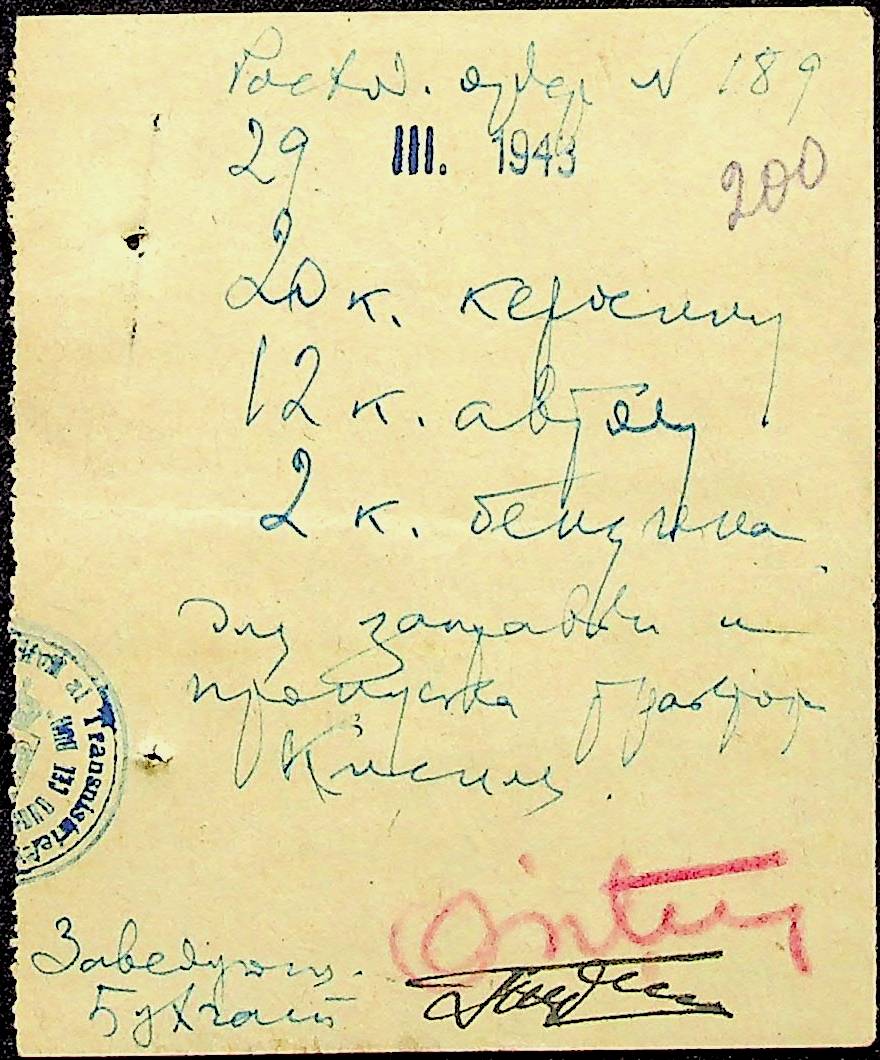 Расход. ордер № 189
29 III. 1943
200
20 к. керосину
12 к. автолу
2 к. бензина
для заправки и
пропуска трактор
Кисиль.
Transnistriei
Заведующ.
Бухгалт